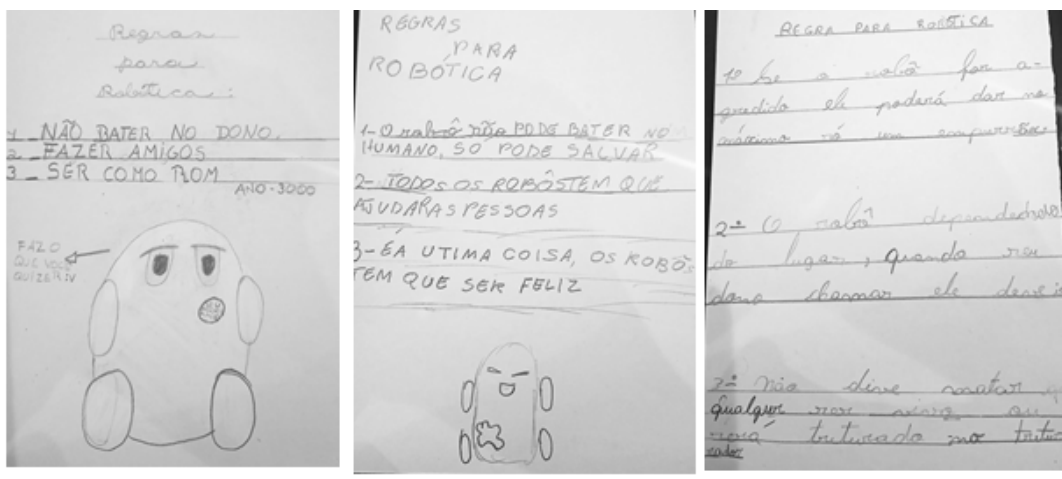 Regras
para
Robótica:
1_ NÃO BATER NO DONO.
2_ FAZER AMIGOS
3_ SER COMO ROM
ANO-3000
FAZ O
QUE VOCÊ
QUIZER
REGRAS
PARA
ROBÓTICA
1-O robô não PODE BATER NO
HUMANO, SÓ PODE SALVAR
2- TODOS OS ROBÔS TEM QUE
AJUDAR AS PESSOAS
3-É A UTIMA COISA, OS ROBÔS
TEM QUE SER FELIZ
REGRA PARA ROBÓTICA
1º Se o robô for a-
gredido ele poderá dar no
máximo só um
2º O robô dependendo
do lugar, quando seu
dono chamar ele deve
3º não dive matar
qualquer ser vivo ou
será triturado no tritu
rador